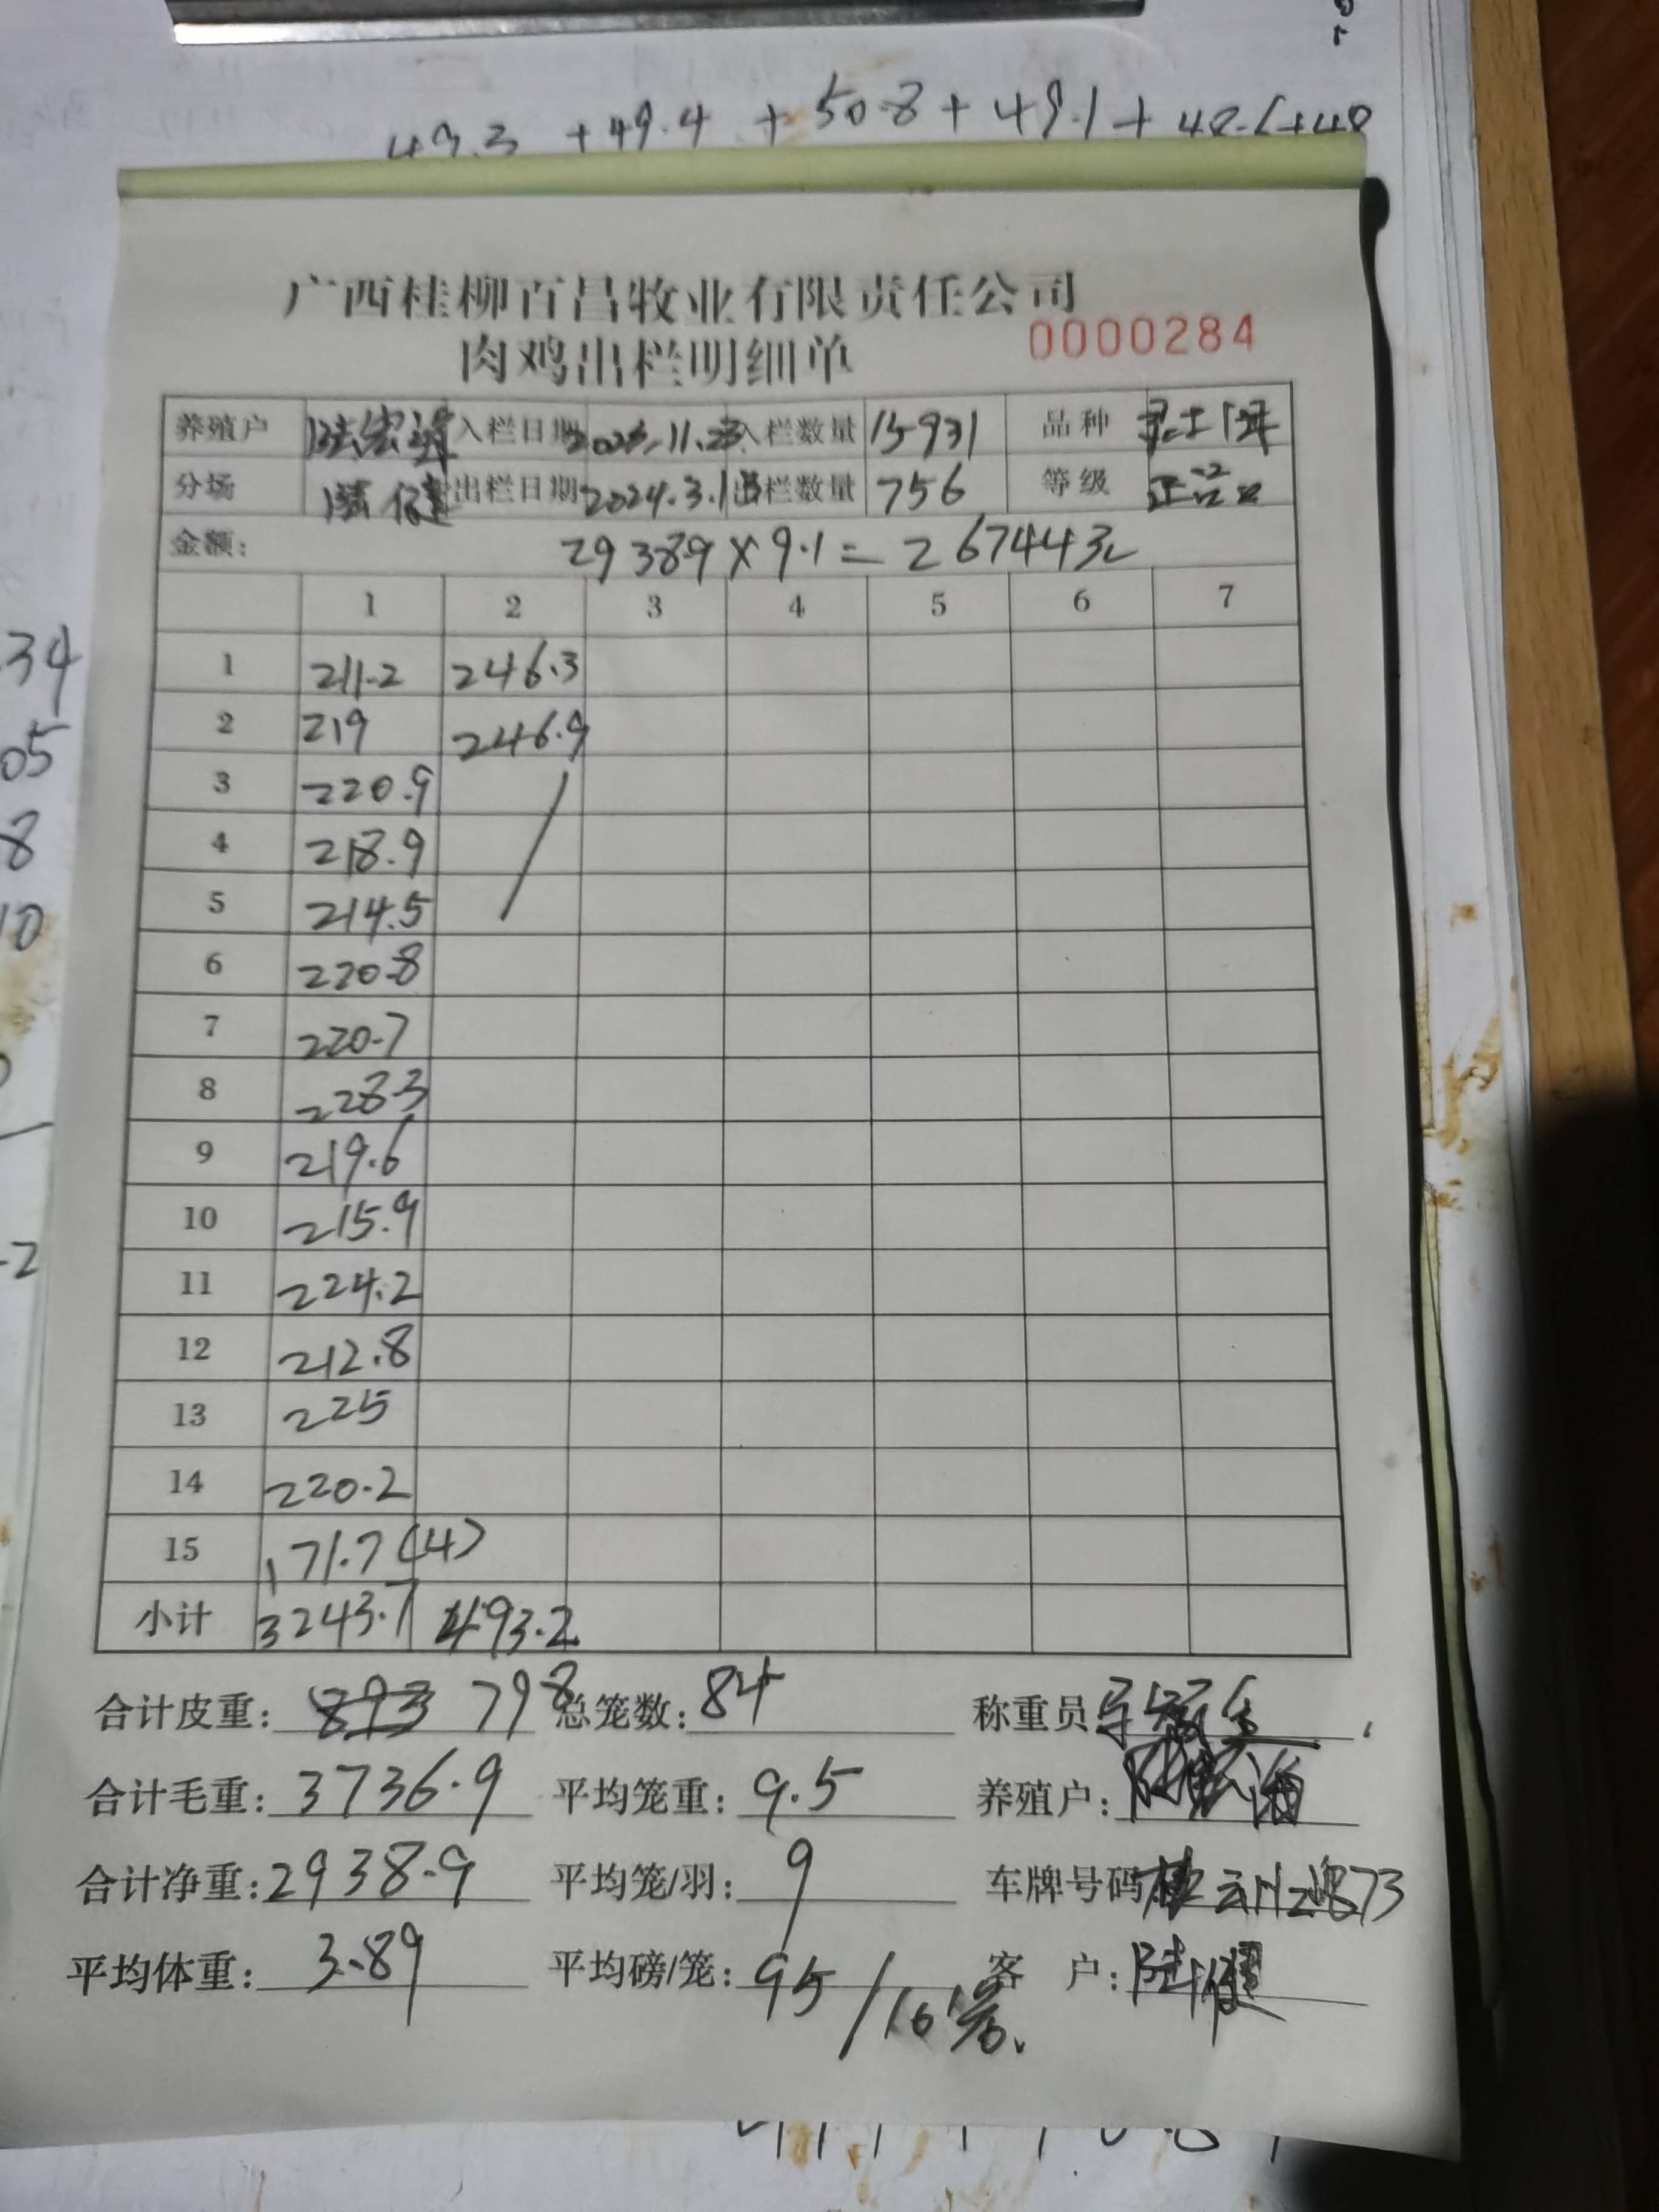 49.3 +49.4 + 50.8 + 49.1 +
广西桂柳百昌牧业有限责任公司
肉鸡出栏明细单 0000284
养殖户 入栏日期 2023.11.23 入栏数量 15931 品种
分场 出栏日期 2024.3.1 出栏数量 756 等级 正品
金额: 29389×9.1=267443
1 2 3 4 5 6 7
1 211.2 246.3
2 219 246.9
3 220.9
4 218.9
5 214.5
6 220.8
7 220.7
8 228.3
9 219.6
10 215.9
11 224.2
12 212.8
13 225
14 220.2
15 171.7(4)
小计 3243.7 493.2
合计皮重: 893 798 总笼数: 84 称重员
合计毛重: 3736.9 平均笼重: 9.5 养殖户:
合计净重: 2938.9 平均笼/羽: 9 车牌号码
平均体重: 3.89 平均磅/笼: 95/10 客 户: 陆健
34
05
8
10
-2